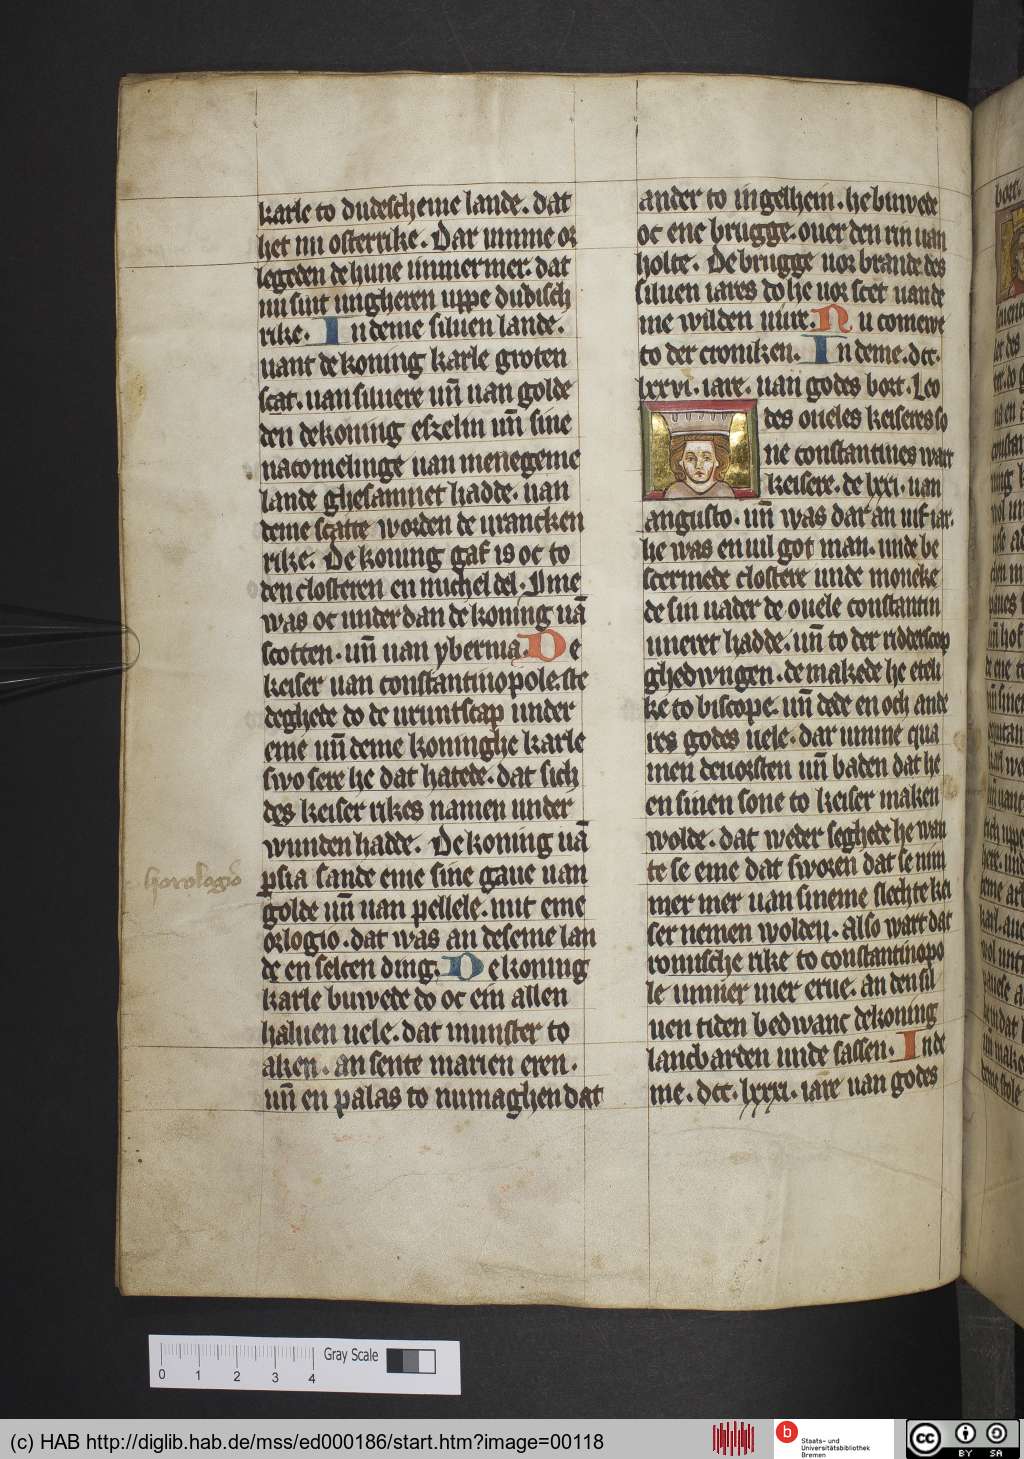 karle to dudescheme lande. dat
het nu osterrike. Dar umme or
legeden de hune immermer. dat
nu sint ungheren uppe dudisch
rike. In deme siluen lande.
uant de koning karle groten
scat. uan siluere uñ uan golde
den de koning eszelin uñ sine
nacomelinge uan menegeme
lande ghesamnet hadde. uan
deme scatte worden de urancken
rike. De koning gaf is oc to
den closteren en michel del. Ime
was oc under dan de koning uā
scotten. uñ uan ybernia. De
keiser uan constantinopole. ste
deghede do de uruntscap under
eme uñ deme koninghe karle
swo sere he dat hatede. dat sich
des keiser rikes namen under
wunden hadde. De koning uā
psia sande eme sine gaue uan
golde uñ uan pellele. mit eme
orlogio. dat was an deseme lan
de en selten ding. De koning
karle buwede do oc ein allen
haluen uele. dat munster to
aken. an sente marien eren.
uñ en palas to numaghen dat
horologiō
ander to ingelhem. he buwede
oc ene brugge. ouer den rin uan
holte. De brugge uor brande des
siluen iares do he uor scet uande
me wilden uiure. Nu come we
to der croniken. In deme. dcc.
lxxvi. iare. uan godes bort. Leo
des oueles keiseres so
ne constantines wart
keisere. de lxxi. uan
angusto. uñ was dar an uif iar.
he was en uil got man. unde be
scermede clostere unde moneke
de sin uader de ouele constantin
uneret hadde. uñ to der ridderscop
ghedwngen. de makede he eteli
ke to biscope. uñ dede en och ande
res godes uele. dar umme qua
men de uorsten uñ baden dat he
en sinen sone to keiser maken
wolde. dat weder seghede he wan
te se eme dat sworen dat se nim
mer mer uan sineme slechte kei
ser nemen wolden. also wart dat
romische rike to constantinopo
le immer mer erue. an den sil
uen tiden bedwanc de koning
lancbarden unde sassen. In de
me. dcc. lxxxi. iare uan godes
0 1 2 3 4
Gray Scale
(c) HAB http://diglib.hab.de/mss/ed000186/start.htm?image=00118
b
Staats- und
Universitätsbibliothek
Bremen
cc
BY SA